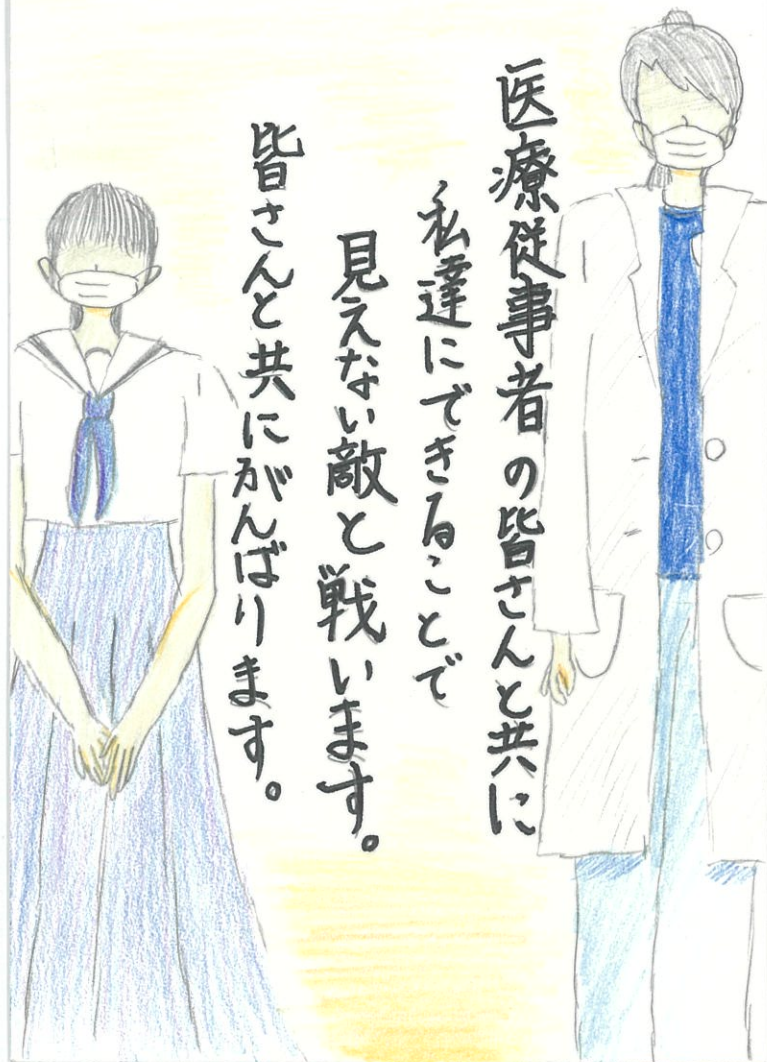 医療従事者の皆さんと共に
私達にできることで
見えない敵と戦います。
皆さんと共にがんばります。